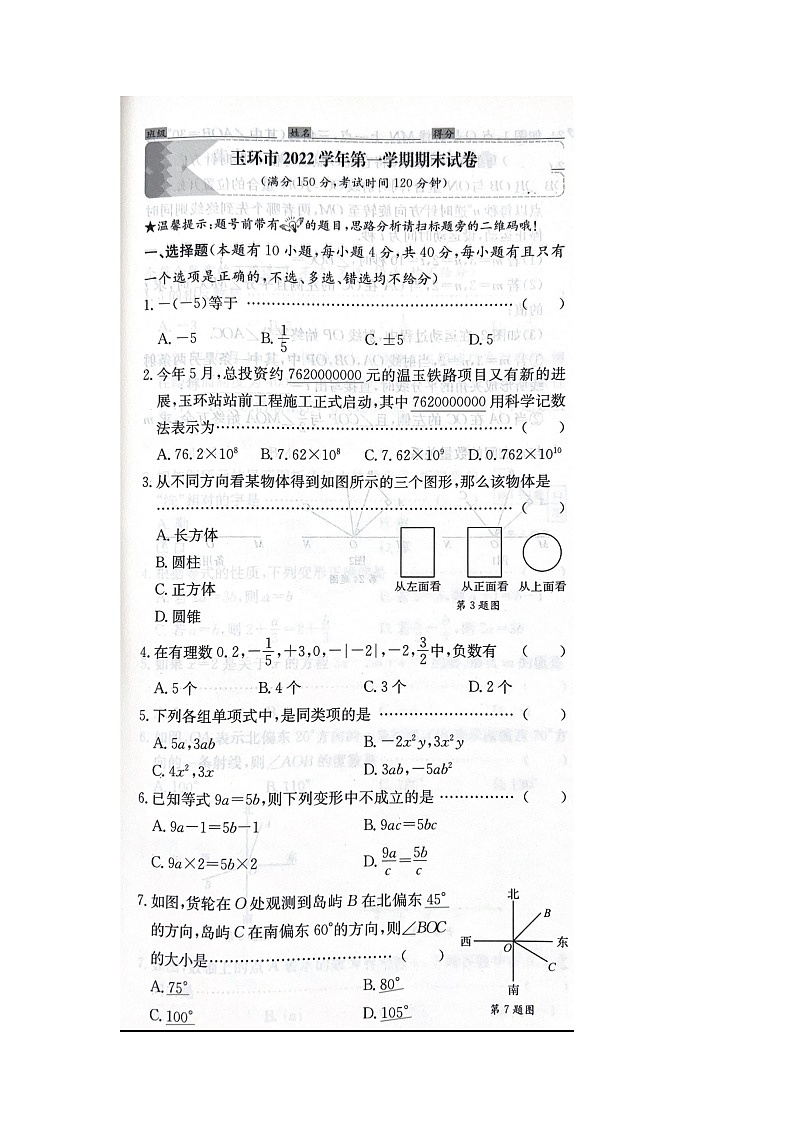 班级 姓名 得分
玉环市 2022 学年第一学期期末试卷
(满分 150 分,考试时间 120 分钟)
★温馨提示:题号前带有 的题目,思路分析请扫标题旁的二维码哦!
一、选择题(本题有 10 小题,每小题 4 分,共 40 分,每小题有且只有
一个选项是正确的,不选、多选、错选均不给分)
1. -(-5)等于 ………………………………………… ( )
A. -5 B. 1/5 C. ±5 D. 5
2. 今年 5 月,总投资约 7620000000 元的温玉铁路项目又有新的进
展,玉环站站前工程施工正式启动,其中 7620000000 用科学记数
法表示为………………………………………… ( )
A. 76.2×10⁸ B. 7.62×10⁸ C. 7.62×10⁹ D. 0.762×10¹⁰
3. 从不同方向看某物体得到如图所示的三个图形,那么该物体是
………………………………………………… ( )
A. 长方体
B. 圆柱
C. 正方体
D. 圆锥
从左面看 从正面看 从上面看
第 3 题图
4. 在有理数 0.2,-1/5,+3,0,-|-2|,-2,3/2中,负数有 ( )
A. 5 个 B. 4 个 C. 3 个 D. 2 个
5. 下列各组单项式中,是同类项的是 …………………… ( )
A. 5a,3ab B. -2x²y,3x²y
C. 4x²,3x D. 3ab,-5ab²
6. 已知等式 9a=5b,则下列变形中不成立的是 …………… ( )
A. 9a-1=5b-1 B. 9ac=5bc
C. 9a×2=5b×2 D. 9a/c=5b/c
7. 如图,货轮在 O 处观测到岛屿 B 在北偏东 45°
的方向,岛屿 C 在南偏东 60°的方向,则∠BOC
的大小是…………………………… ( )
A. 75° B. 80°
C. 100° D. 105°
北
B
西 O 东
C
南
第 7 题图